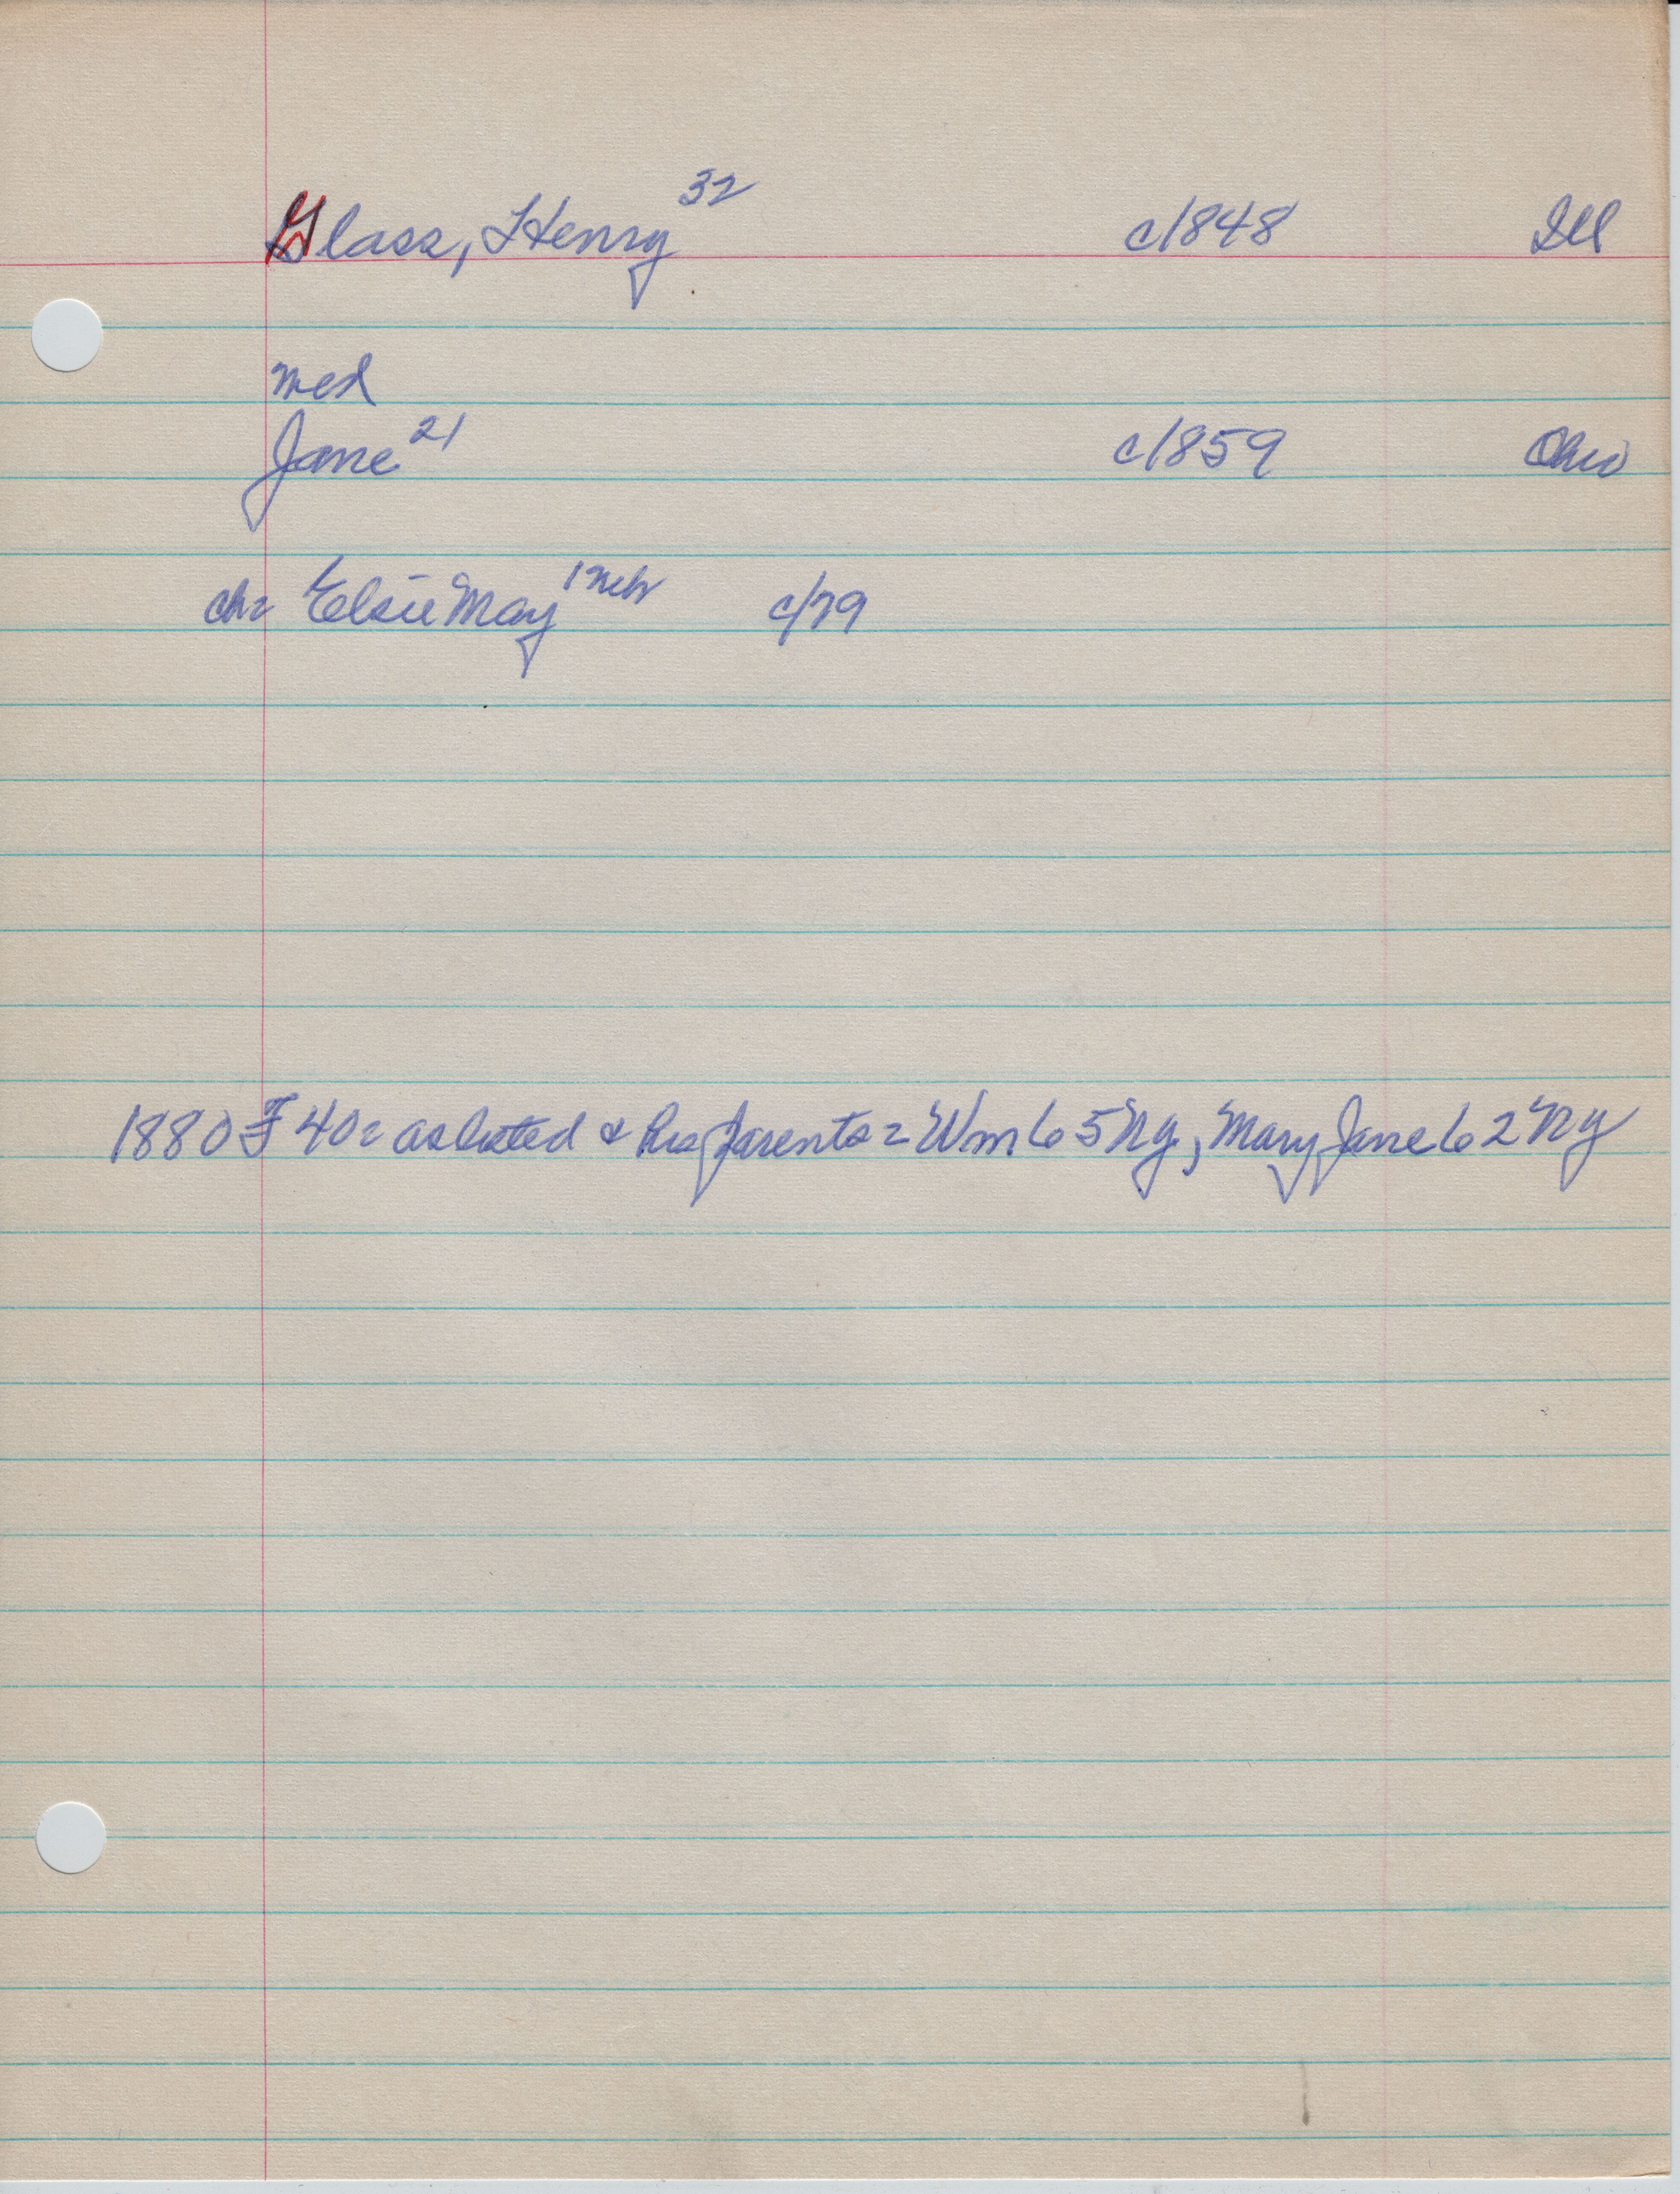 Glass, Henry 32 c/1848 Ill
med
Jane 21 c/1859 Ohio
ch= Elsie May 1 mch c/79
1880 F 40= as listed & his parents = Wm 65 Ny, Mary Jane 62 Ny